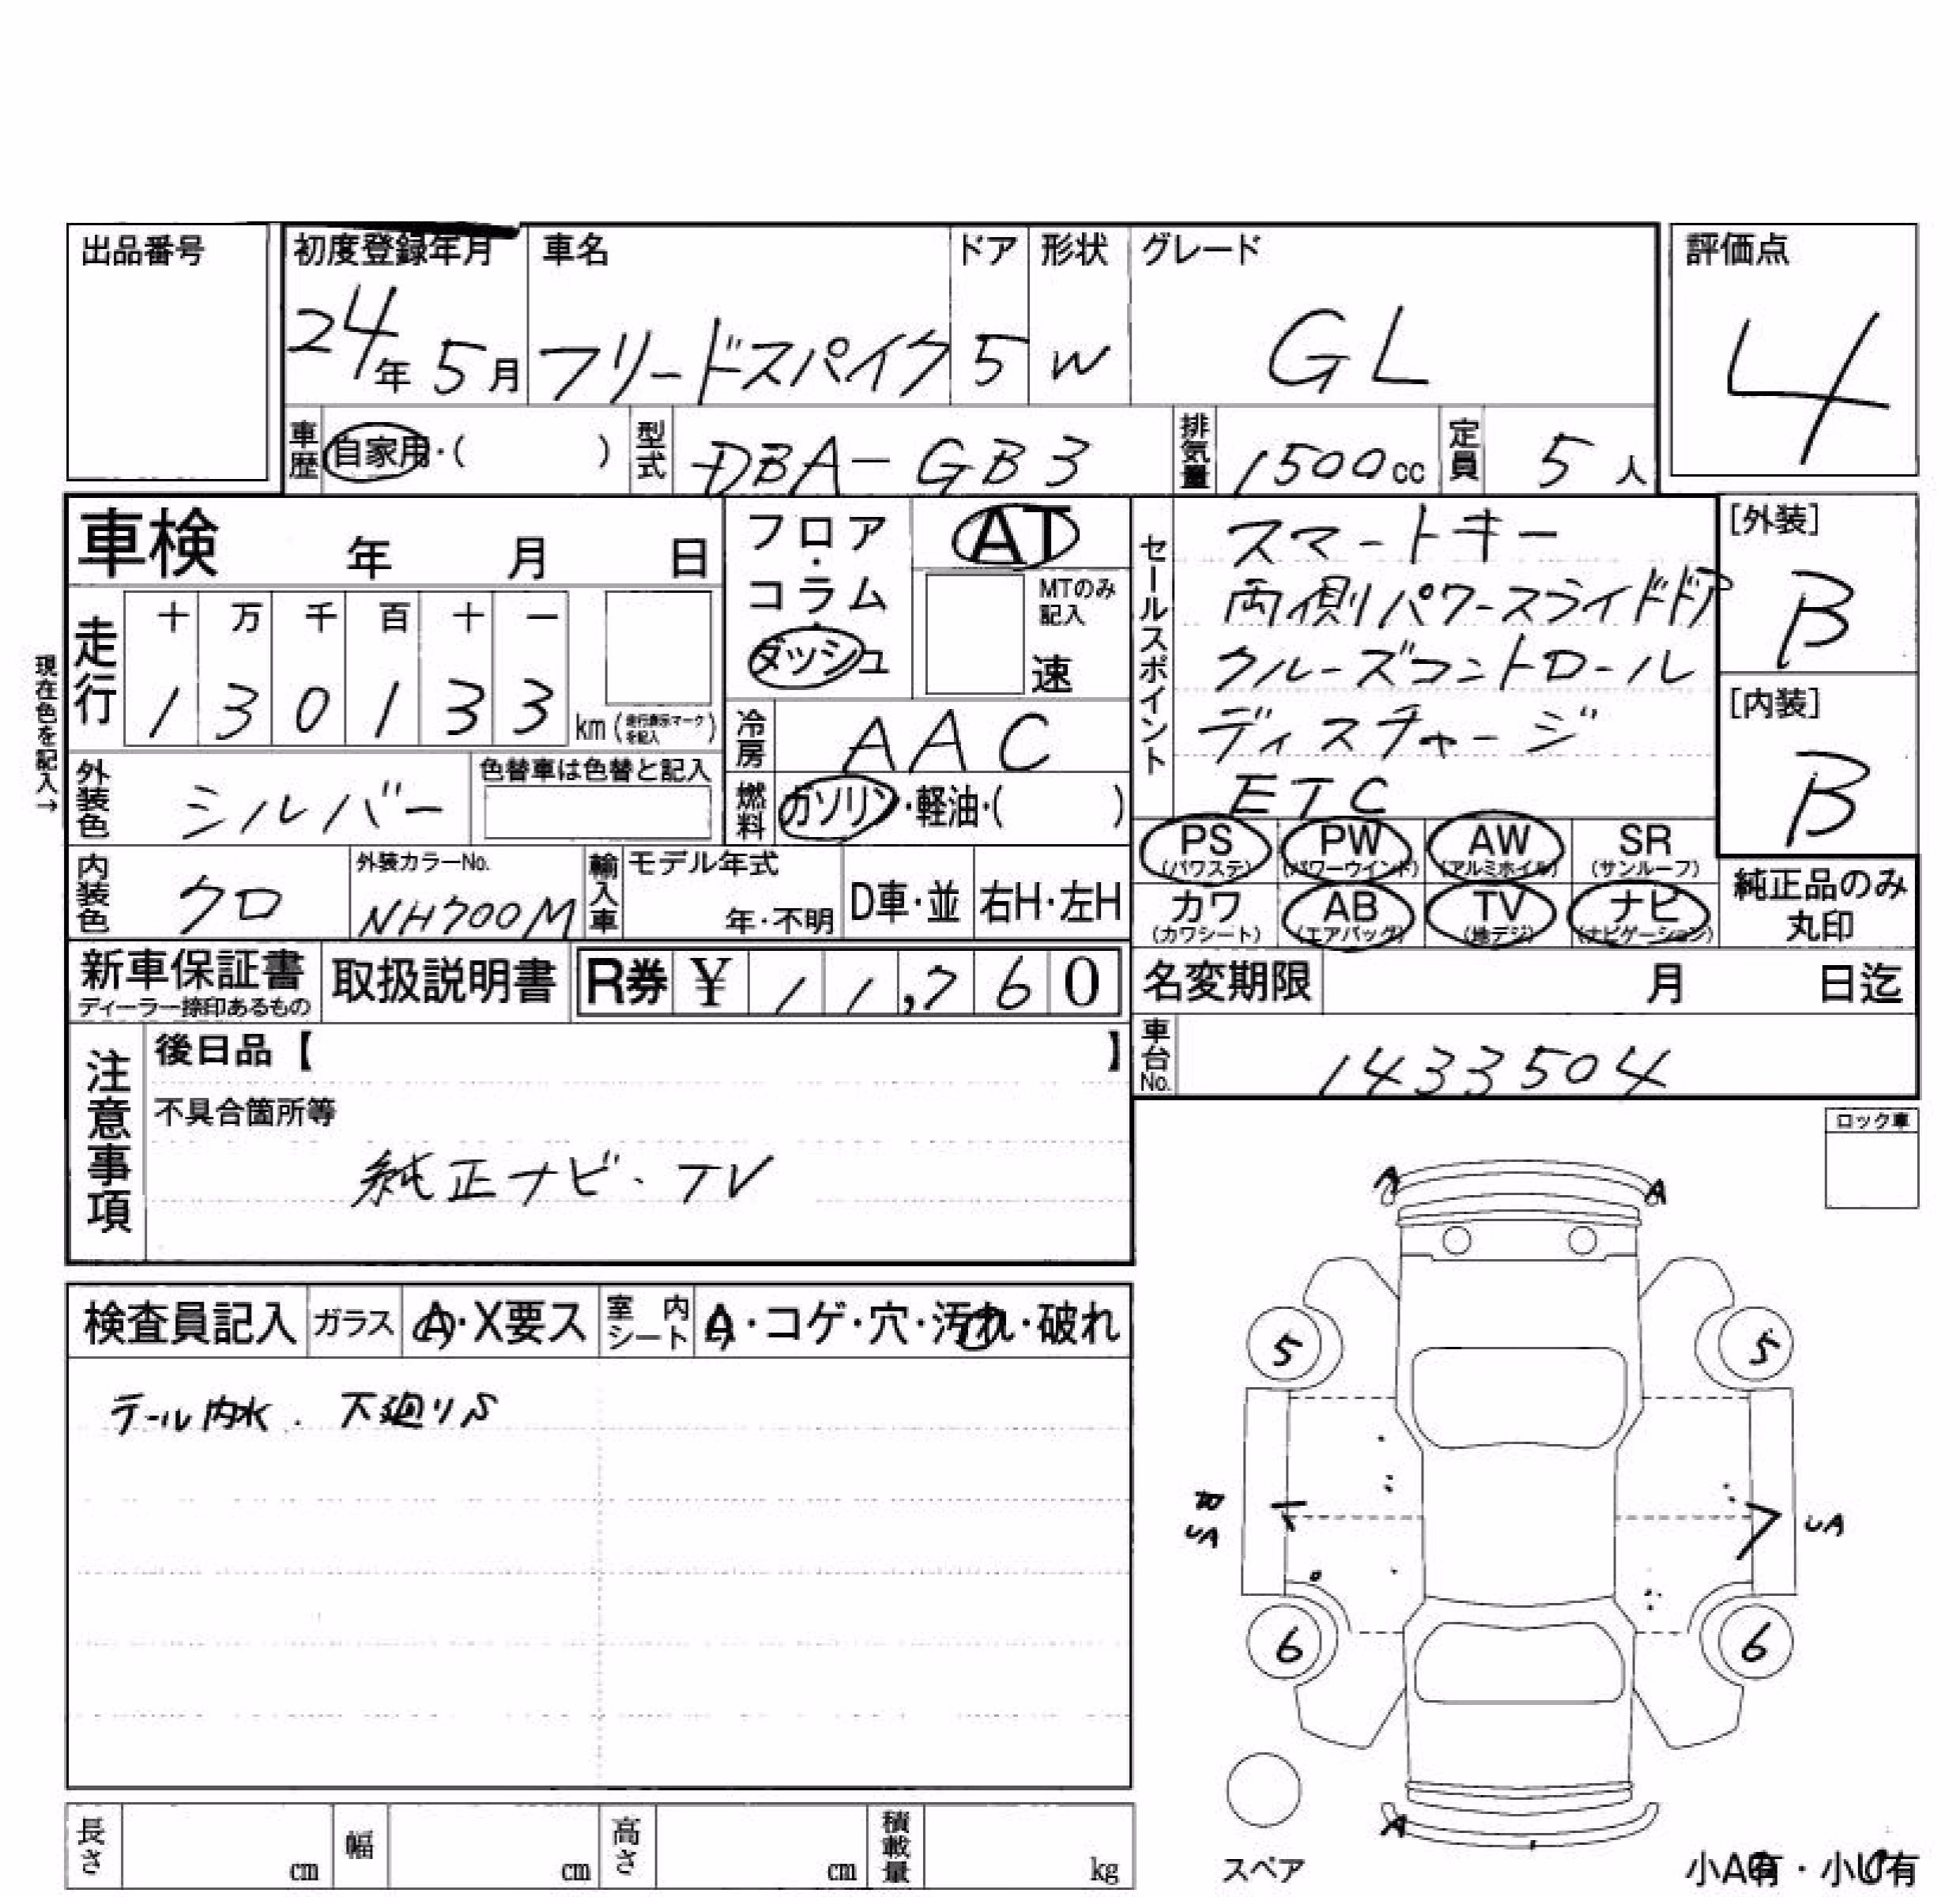 出品番号
初度登録年月 車名 ドア 形状 グレード 評価点
24年 5月 フリードスパイク 5 W GL 4
車歴 自家用・( ) 型式 DBA-GB3 排気量 1500cc 定員 5人
車検 年 月 日
フロア・コラム ダッシュ
AT
MTのみ記入
速
セールスポイント
スマートキー
両側パワースライドドア
クルーズコントロール
ディスチャージ
ETC
[外装]
B
[内装]
B
現在色を記入→
走行 十 万 千 百 十 一
1 3 0 1 3 3 km(走行表示マークを記入)
冷房 AAC
外装色 シルバー 色替車は色替と記入
燃料 ガソリン・軽油・( )
PS (パワステ) PW (パワーウインド) AW (アルミホイル) SR (サンルーフ)
カワ (カワシート) AB (エアバッグ) TV (地デジ) ナビ (ナビゲーション)
純正品のみ丸印
内装色 クロ 外装カラーNo. NH700M 輸入車 モデル年式 年・不明 D車・並 右H・左H
新車保証書 ディーラー捺印あるもの 取扱説明書 R券 ¥ 11,760
名変期限 月 日迄
車台No. 1433504
注意事項
後日品【 】
不具合箇所等
純正ナビ・TV
ロック車
検査員記入 ガラス A・X要ス 室内シート A・コゲ・穴・汚れ・破れ
テール内水. 下廻りS
A A
5 5
UA UA
6 6
A
スペア
小A有・小U有
長さ cm 幅 cm 高さ cm 積載量 kg